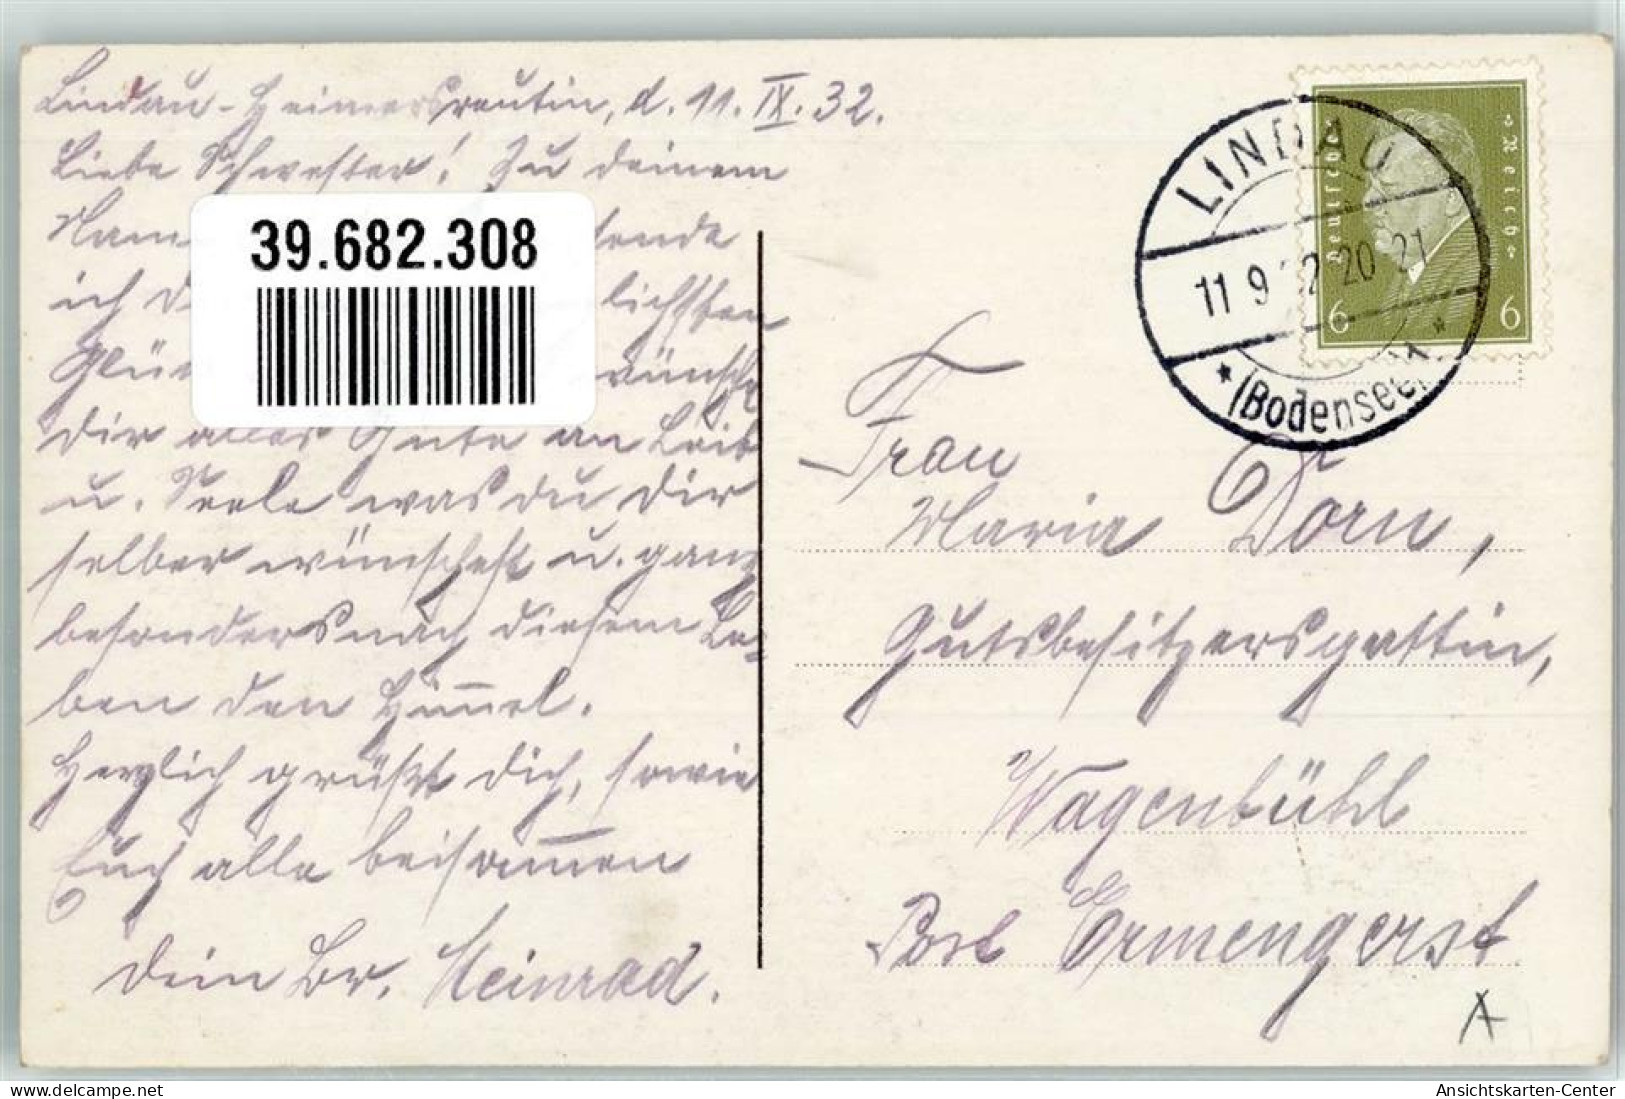 Lindau-Heimesreutin, d. 11. IX. 32.
Liebe Schwester! Zu deinem
Nam sende
ich D lichsten
Glü wünsche
Dir alles Gute an Leib
u. Seele was du dir
selber wünschest u. ganz
besonders nach diesem Le-
ben den Himmel.
Herzlich grüßt dich, sowie
Euch alle beisammen
Dein Br. Meinrad.
39.682.308
Deutsches Reich
6 6
LINDAU
11 9 32 20 21
* (Bodensee) *
Frau
Maria Dorn,
Gutsbesitzersgattin,
Wagenbühl
Post Ermengerst
A
delcampe.net
Ansichtskarten-Center